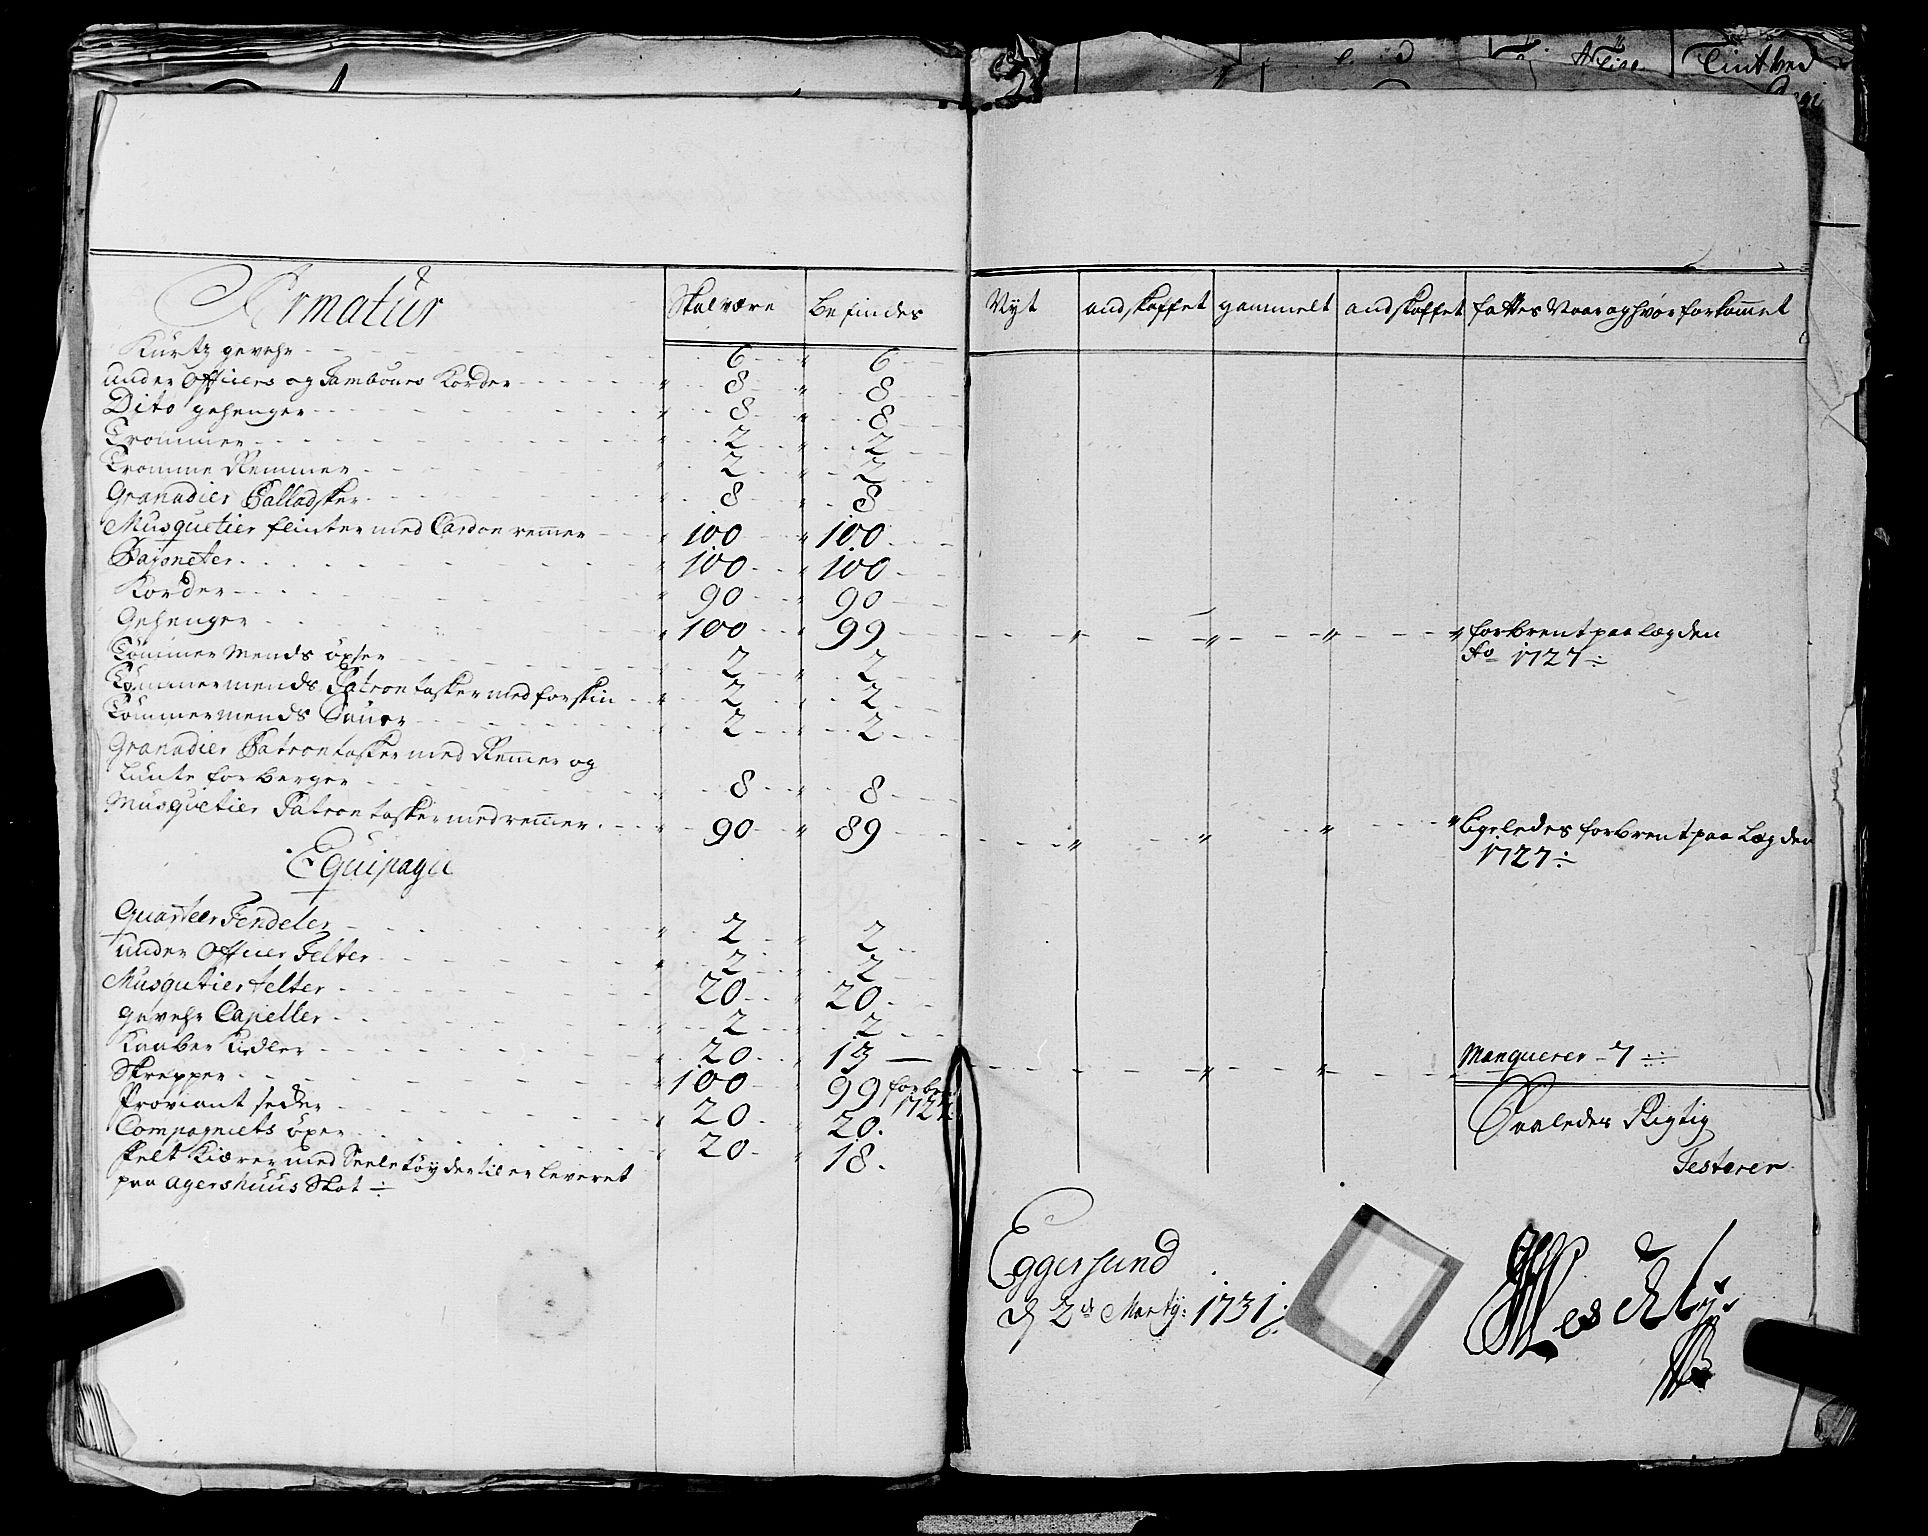 Armatur Skal være Befindes Nyt andskaffet gammelt andskaffet fattes Naar og hvor forkommet
Kurtz gevehr 6 6
under Officers og Tambours Korder 8 8
Dito gehenger 8 8
Trommer 2 2
Tromme Remmer 2 2
Granadier Palladsker 8 8
Musquetier flinter med Cardon remmer 100 100
Bajoneter 100 100
Korder 90 90
Gehenger 100 99 forbrent paa Lægden
Ao 1727
Tømmermends øxser 2 2
Tømmermends Patrontasker med forskiin 2 2
Tømmermends Sauer 2 2
Granadier Patrontasker med Remmer og
Lunte forberger 8 8
Musquetier Patrontasker med remmer 90 89 Ligeledes forbrent paa Lægden
1727
Equipagie
Quarteer Fendeler 2 2
under Officier Telter 2 2
Musqutier telter 20 20
gevehr Capeller 2 2
Kaaber Kiedler 20 13 Manquerer 7
Skrepper 100 99 forbr: 1727
Proviant seder 20 20
Compagniets øxer 20 18
felt Kiærer med Seeletøy dertil er leveret
paa Agershuus Slot
Saaledes Rigtig
Testerer
Eggersund
d 2 Marty: 1731